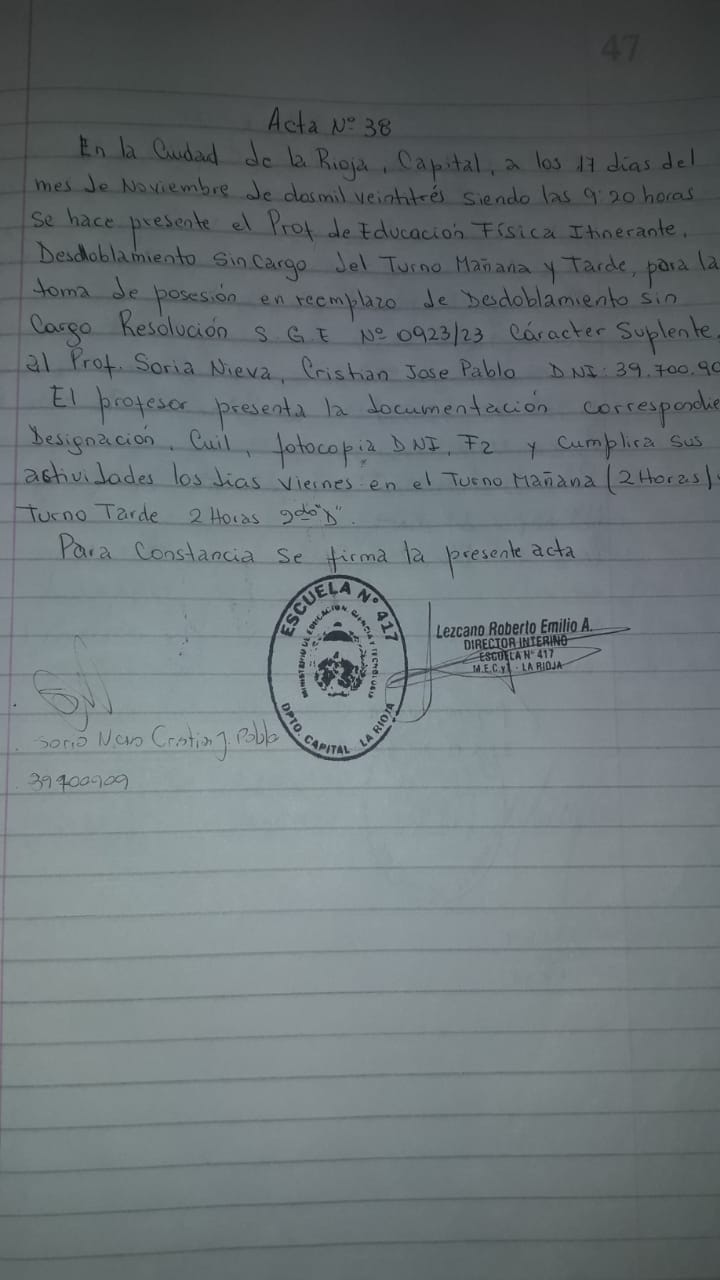 47
Acta Nº 38
En la Ciudad de la Rioja, Capital, a los 17 dias del
mes de Noviembre de dosmil veintitrés siendo las 9:20 horas
se hace presente el Prof de Educación Física Itinerante.
Desdoblamiento Sin Cargo del Turno Mañana y Tarde, para la
toma de posesión en reemplazo de Desdoblamiento sin
Cargo Resolución S.G.E Nº 0923/23 Cáracter Suplente.
al Prof. Soria Nieva, Cristian Jose Pablo DNI: 39.700.90
El profesor presenta la documentación correspondie
Designación, Cuil, fotocopia DNI, F2 y Cumplira sus
actividades los dias Viernes en el Turno Mañana (2 Horas).
Turno Tarde 2 Horas 2do "D".
Para Constancia se firma la presente acta
ESCUELA N° 417
MINISTERIO DE EDUCACION, CIENCIA Y TECNOLOGIA
DPTO. CAPITAL LA RIOJA
Lezcano Roberto Emilio A.
DIRECTOR INTERINO
ESCUELA N° 417
M.E.C.yT. - LA RIOJA
Cristian J. Pablo
39700909